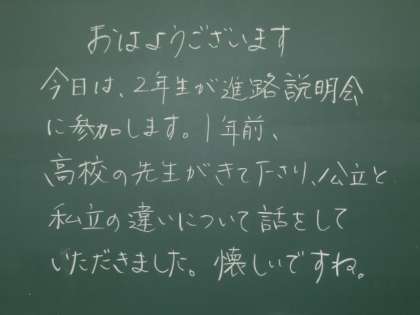 おはようございます
今日は、2年生が進路説明会
に参加します。1年前、
高校の先生がきて下さり、公立と
私立の違いについて話をして
いただきました。懐しいですね。